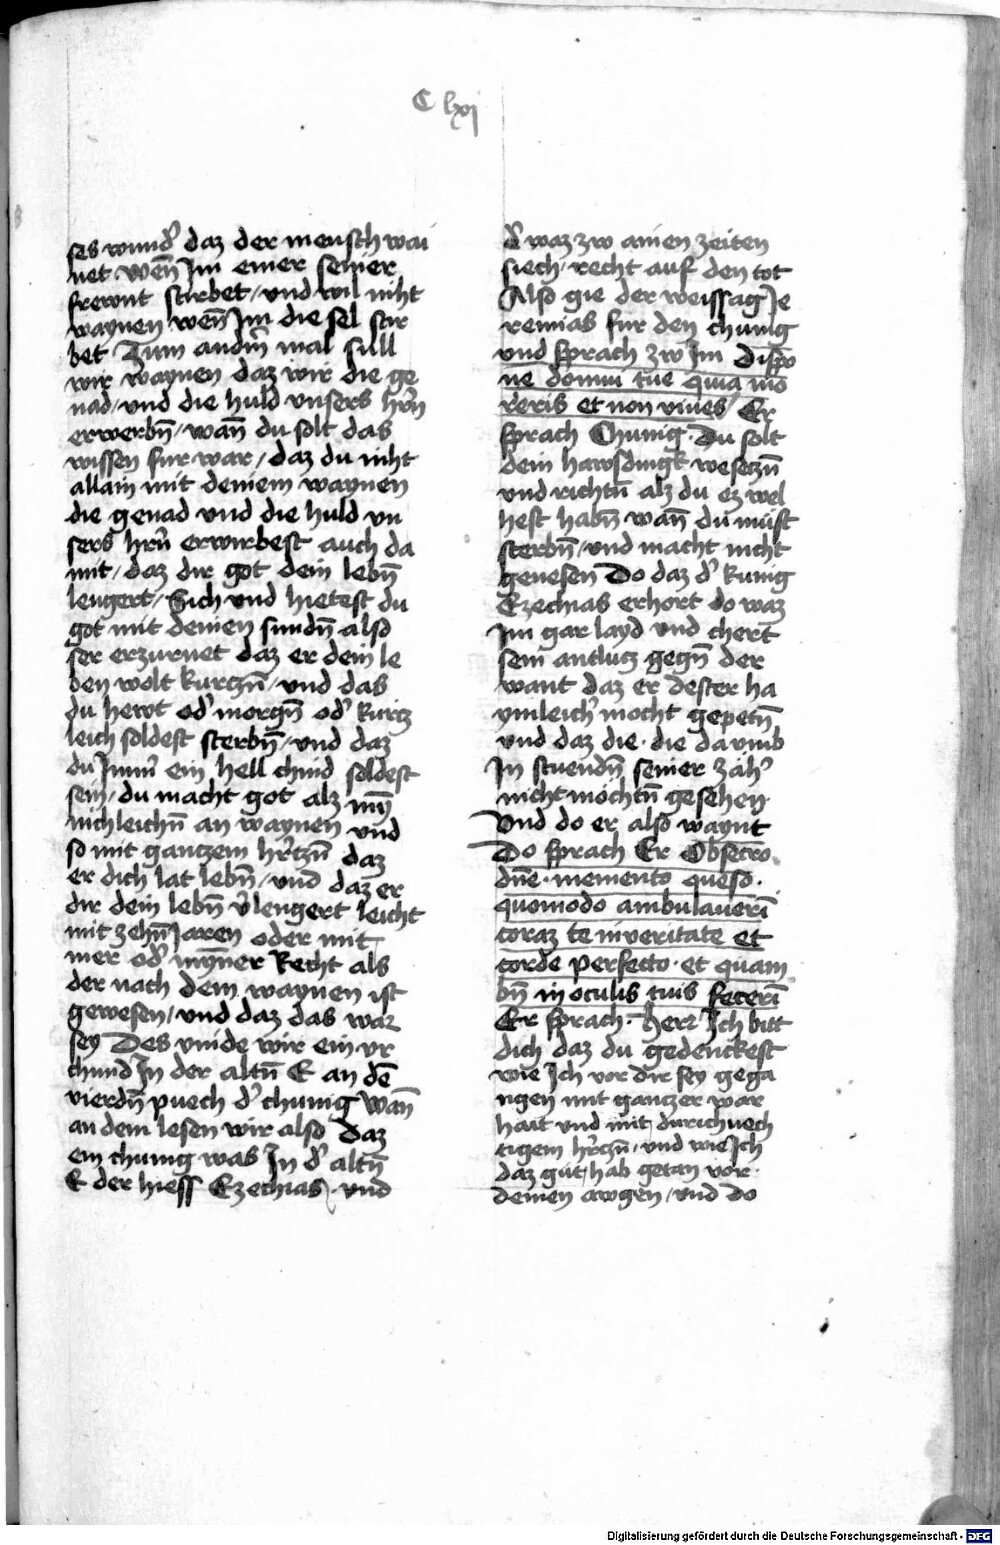 C lxj
ses wund᾽ daz der mensch wai
net. wen̄ Jm einer seiner
frewnt stirbet / vnd wil niht
waynen wen̄ Jm die sel stir
bet Zum andn̄ mal sull
wir waynen daz wir die ge
nad / vnd die huld vnsers hrn̄
erwerbn̄ / wan̄ du solt das
wissen fur war / daz du niht
allain mit deinem waynen
die genad vnd die huld vn
sers hrn̄ erwirbest auch da
mit / daz dir got dein lebn̄
lengert / Sich vnd hietest du
got mit deinen sundn̄ also
ser erzurnet daz er dein le
ben wolt kurczn̄ / vnd das
du hewt od᾽ morgn̄ od᾽ kurcz
leich soldest sterbn̄ / vnd daz
du Jmm᾽ ein hell chind soldest
sein / du macht got alz
nichleichn̄ an waynen vnd
so mit ganczem hr̄czn̄ daz
er dich lat lebn̄ / vnd daz er
dir dein lebn̄ v᾽lengert leicht
mit zehn̄ Jaren oder mit
mer od᾽ myn̄er Recht als
der nach dem waynen ist
gewesen / vnd daz das war
sey Des vinde wir ein vr
chund Jn der altn̄ E an dē
vierdn̄ puech d᾽ chunig Wan̄
an dem lesen wir also daz
ein chunig was Jn d᾽ altn̄
E der hiess Ezechias / vnd
d᾽ waz zw ainen zeiten
siech / recht auf den tot
Also gie der weissag Je
remias fur den chunig
vnd sprach zw Jm Dispo
ne domui tue quia mo
reris et non viues / Er
sprach Chunig. Du solt
dein hawsdingk weseczn̄
vnd richtn̄ alz du ez wel
hest habn̄ wan̄ du müst
sterbn̄ / vnd macht nicht
genesen Do daz d᾽ kunig
Ezechias erhort do waz
Jm gar layd vnd chert
sein antlucz gegn̄ der
want daz er dester ha
ymleich᾽ mocht gepetn̄
vnd daz die. die da vmb
Jn stuendn̄ seiner zäh᾽
nicht möchtn̄ gesehen.
Vnd do er also waynt
Do sprach Er Obsecro
dn̄e. memento queso.
quomodo ambulauerī
coraz te in veritate et
corde perfecto. et quam
bn̄ in oculis tuis fecerī
Er sprach. herr Ich bitt
dich daz du gedenckest
wie Ich vor dir sey gega
ngen mit ganczer war
hait vnd mit durichnech
tigem hr̄czn̄. vnd wie Ich
daz gut / hab getan vor.
deinen awgen / vnd do
Digitalisierung gefördert durch die Deutsche Forschungsgemeinschaft - DFG